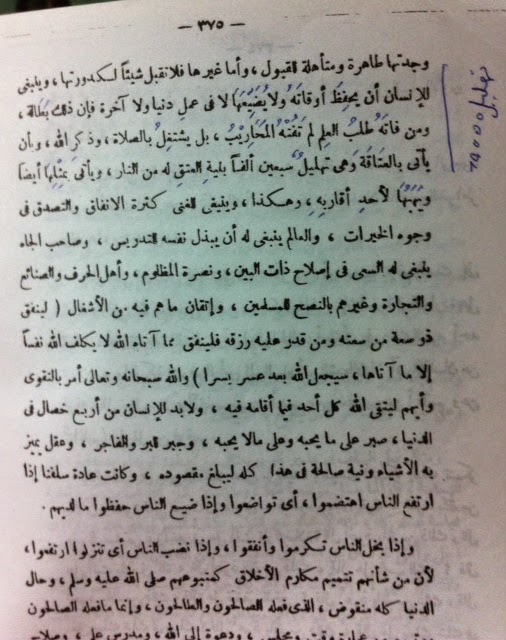 — ٣٧٥ —
وجدتها طاهرة ومتأهلة للقبول ، وأما غيرها فلا تقبل شيئاً لكدورتها ، وينبغى
للإنسان أن يحفظَ أوقاتَهُ ولا يُضَيِّعَهَا لا فى عملِ دنيا ولا آخرة فإن ذلك بَطالة ،
ومن فاتَهُ طلبُ العِلمِ لم تَفُتْهُ المَحَارِيْبُ ، بل يشتغلُ بالصلاة ، وذكر الله ، وبأن
يأتى بالعَتَاقَة وَهى تهليلُ سبعين ألفاً بنيةِ العتقِ له من النار ، ويأتى بَمِثلِها أيضاً
ويَهَبُها لأحدِ أقاربِهِ ، وهـكذا ، وينبغى للغنى كثرة الانفاق والتصدق فى
وجوه الخيرات ، والعالم ينبغى له أن يبذل نفسه للتدريس ، وصاحب الجاه
ينبغى له السعى فى إصلاح ذات البين ، ونصرة المظلوم ، وأهل الحرف والصنائع
والتجارة وغيرهم بالنصح للمسلمين ، وإتقان ما هم فيه من الأشغال ( لينفق
ذو سعة من سعته ومن قدر عليه رزقه فلينفق مما آتاه الله لا يكلف الله نفساً
إلا ما آتاها ، سيجعل الله بعد عسر يسرا ) والله سبحانه وتعالى أمر بالتقوى
وأيهم ليتقى الله كل أحد فيما أقامه فيه ، ولابد للإنسان من أربع خصال فى
الدنيا ، صبر على ما يحبه وعلى مالا يحبه ، وجبر للبر والفاجر ، وعقل يميز
به الأشياء ونية صالحة فى هذا كله ليبلغ مقصوده ، وكانت عادة سلفنا إذا
ارتفع الناس اهتضموا ، أى تواضعوا وإذا ضيع الناس حفظوا ما لديهم .
وإذا بخل الناس تكرموا وأنفقوا ، وإذا نضب الناس أى تنزلوا ارتفعوا ،
لأن من شأنهم تتميم مكارم الأخلاق كمتبوعهم صلى الله عليه وسلم ، وحال
الدنيا كله منقوض ، الذى فعله الصالحون والطالحون ، وإنما ما فعله الصالحون
وقت ومجلس ، ودعوة إلى الله ، ومدرس على ، وصلاح
تهليل ٧٥٠٠٠